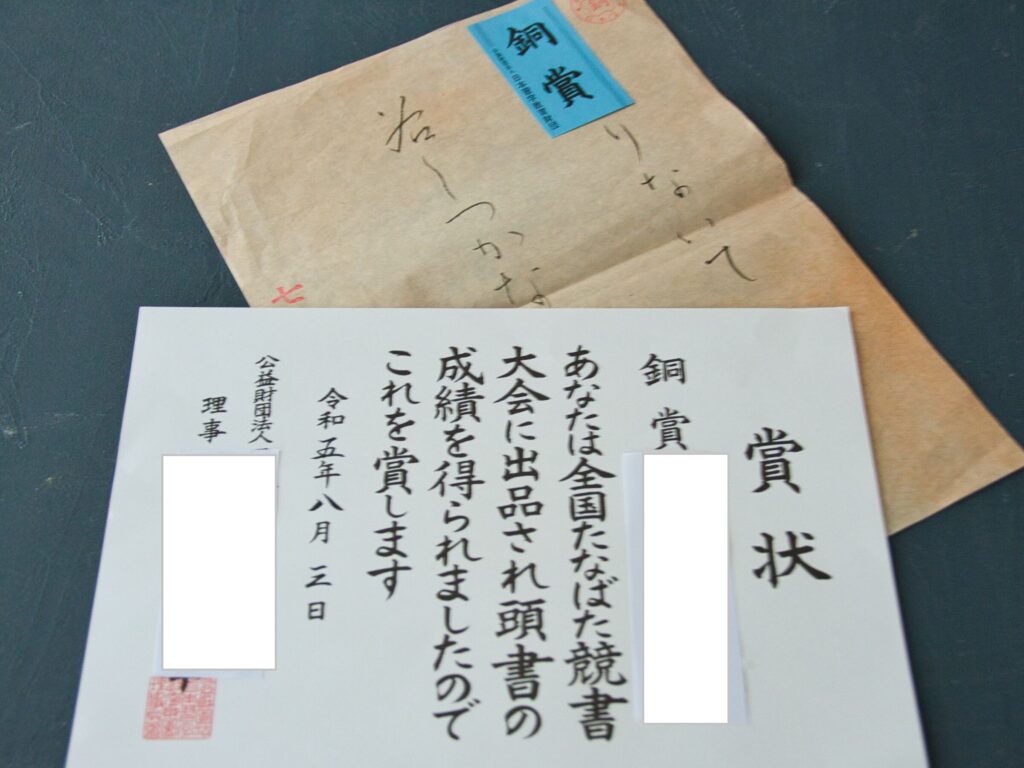 賞状
銅賞
あなたは全国たなばた競書
大会に出品され頭書の
成績を得られましたので
これを賞します
令和五年八月三日
公益財団法人
理事
銅賞
りないで
つかな